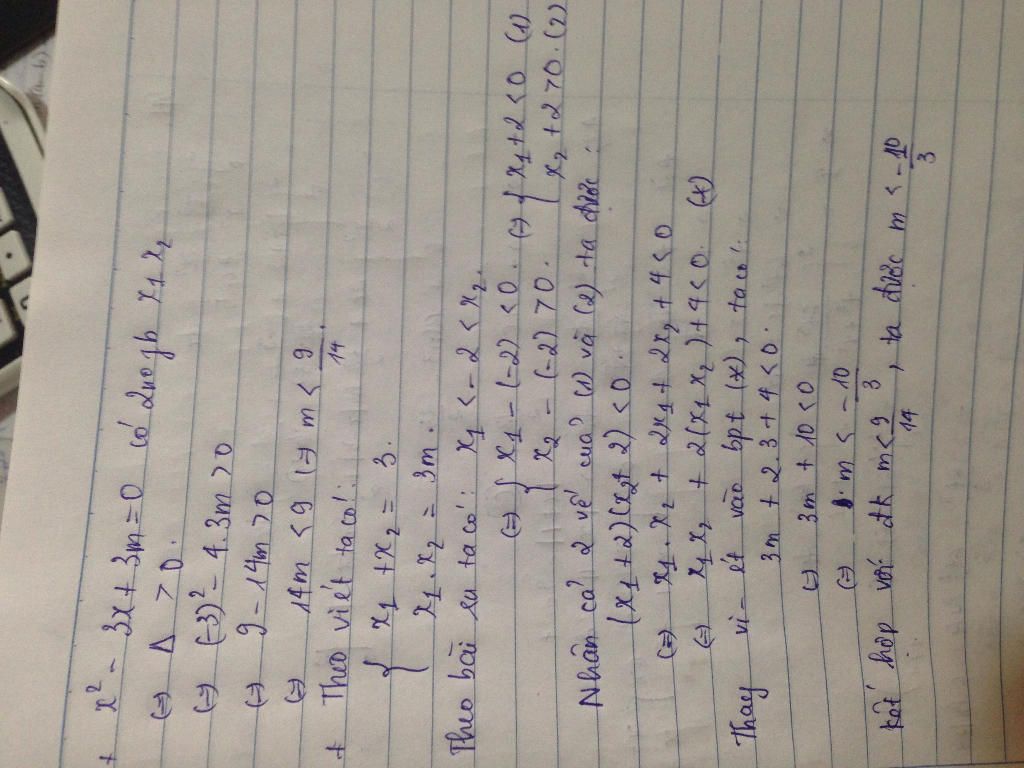 + x² - 3x + 3m = 0 có 2 nghiệm pb x₁ x₂
(=) Δ > 0.
(=) (-3)² - 4.3m > 0
(=) 9 - 14m > 0
(=) 14m < 9 (=) m < 9/14.
+ Theo viét ta có:
{ x₁ + x₂ = 3.
x₁.x₂ = 3m.
Theo bài ra ta có: x₁ < -2 < x₂.
(=) { x₁ - (-2) < 0. (=) { x₁ + 2 < 0 (1)
x₂ - (-2) > 0. x₂ + 2 > 0. (2)
Nhân cả 2 vế của (1) và (2) ta được:
(x₁ + 2)(x₂ + 2) < 0.
(=) x₁.x₂ + 2x₁ + 2x₂ + 4 < 0
(=) x₁x₂ + 2(x₁x₂) + 4 < 0. (*)
Thay vi-ét vào bpt (*), ta có:
3m + 2.3 + 4 < 0.
(=) 3m + 10 < 0
(=) m < -10/3
kết hợp với đk m < 9/14, ta được m < -10/3